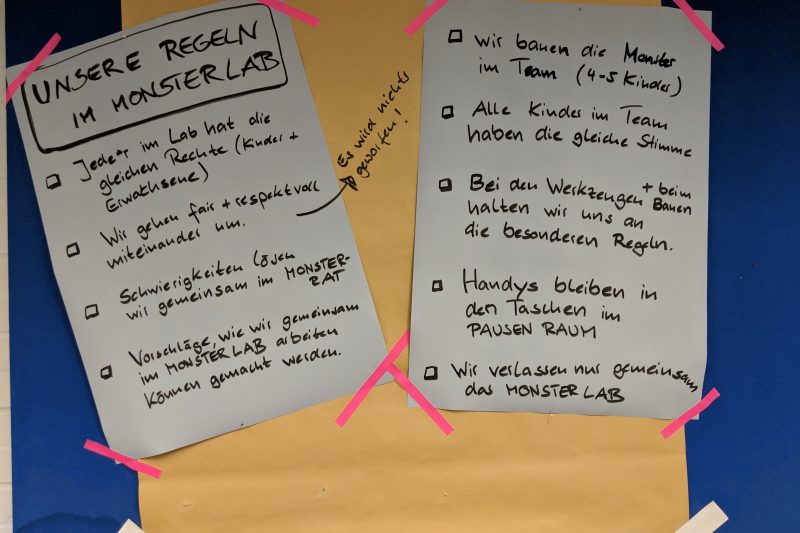 UNSERE REGELN
IM MONSTERLAB
Jede*r im Lab hat die
gleichen Rechte (Kinder +
Erwachsene)
Wir gehen fair + respektvoll
miteinander um.
Es wird nichts
geworfen!
Schwierigkeiten lösen
wir gemeinsam im MONSTER-
RAT
Vorschläge, wie wir gemeinsam
im MONSTERLAB arbeiten
können gemacht werden.
Wir bauen die Monster
im Team (4-5 Kinder)
Alle Kinder im Team
haben die gleiche Stimme
Bei den Werkzeugen + beim Bauen
halten wir uns an
die besonderen Regeln.
Handys bleiben in
den Taschen im
PAUSEN RAUM
Wir verlassen nur gemeinsam
das MONSTER LAB